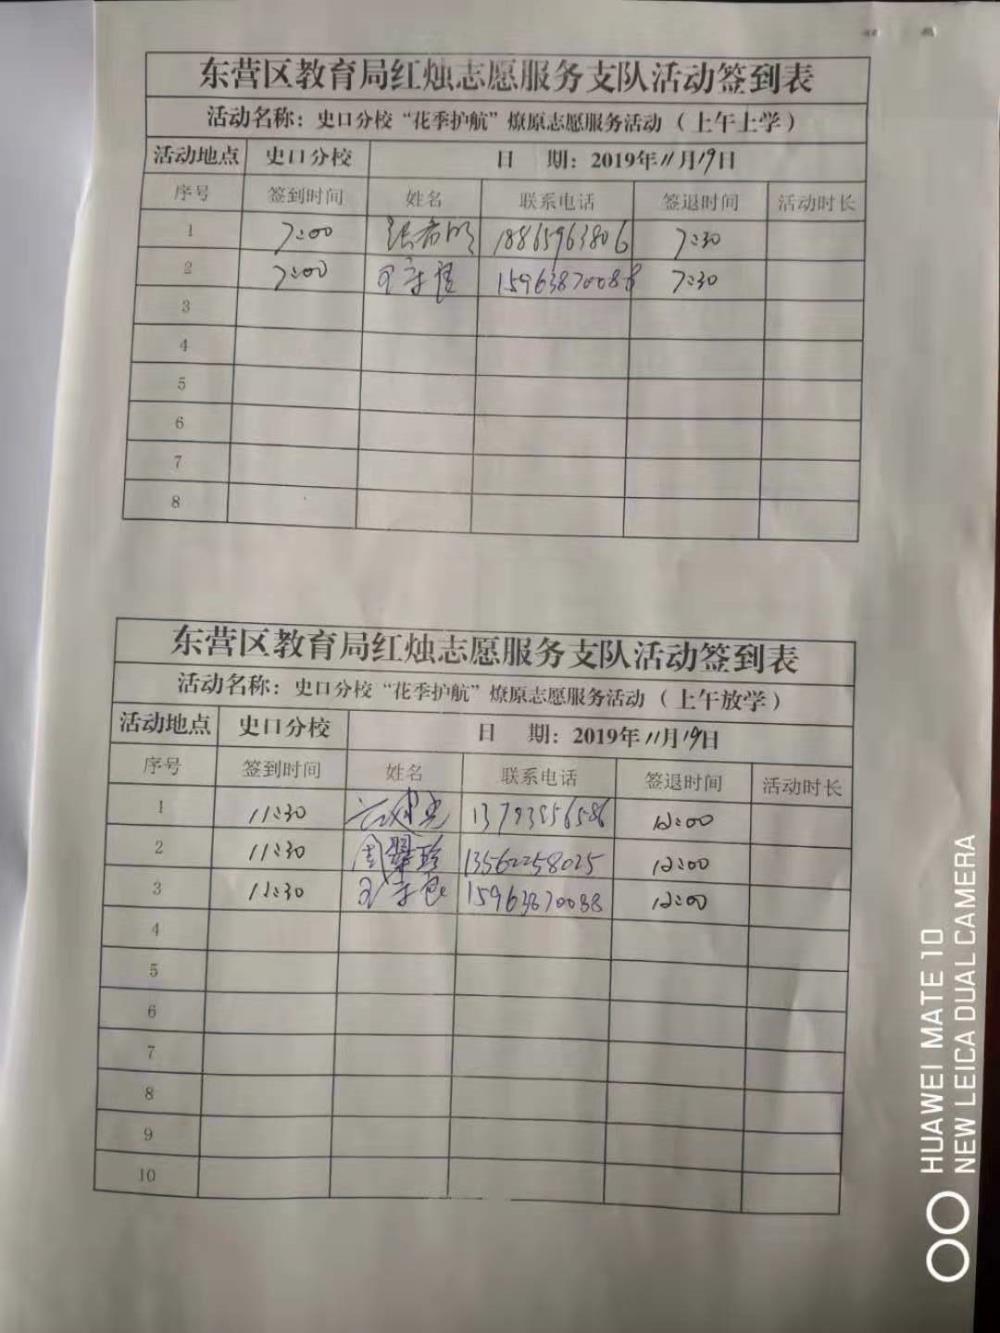 东营区教育局红烛志愿服务支队活动签到表
活动名称：史口分校“花季护航”燎原志愿服务活动（上午上学）
活动地点 史口分校 日 期：2019年11月19日
序号 签到时间 姓名 联系电话 签退时间 活动时长
1 7:00 18865963806 7:30
2 7:00 15963870088 7:30
3
4
5
6
7
8
东营区教育局红烛志愿服务支队活动签到表
活动名称：史口分校“花季护航”燎原志愿服务活动（上午放学）
活动地点 史口分校 日 期：2019年11月19日
序号 签到时间 姓名 联系电话 签退时间 活动时长
1 11:30 13793556586 12:00
2 11:30 周翠珍 13562258025 12:00
3 11:30 15963870088 12:00
4
5
6
7
8
9
10
HUAWEI MATE 10
NEW LEICA DUAL CAMERA